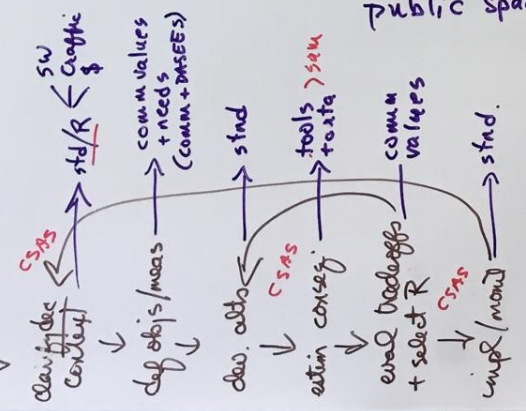 public spa
clarify dec
context
CSAS
std/R < SW
traffic
$
def objs/meas
comm values
+ needs
(comm + DASEES)
dev. alts
stnd
CSAS
estim conseq.
tools > sam
+ data
eval tradeoffs
+ select R
comm
values
CSAS
impl/monit
stnd.